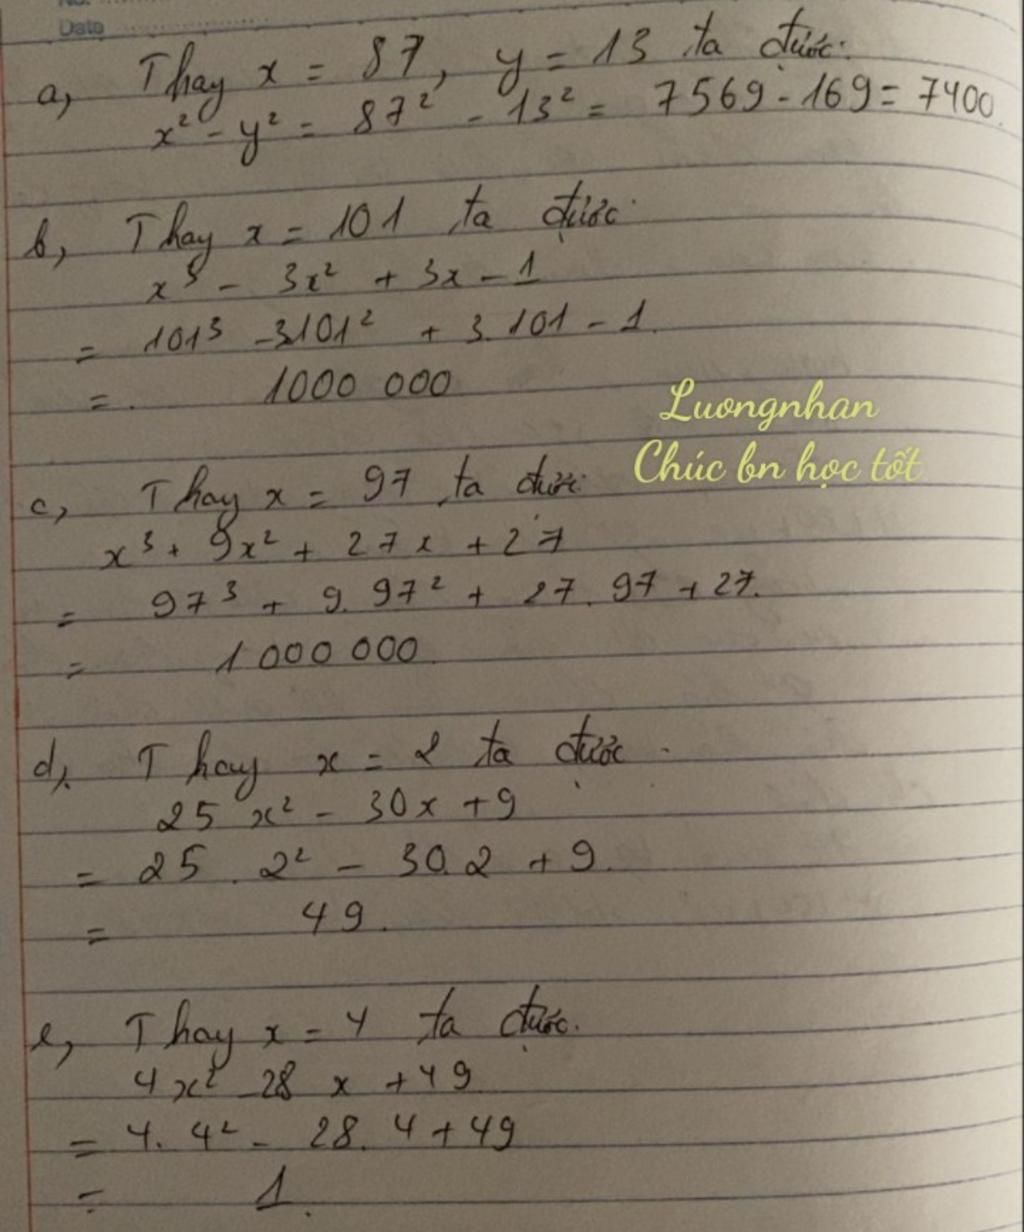 No.
Date
a, Thay x = 87, y = 13 ta được:
x² - y² = 87² - 13² = 7569 - 169 = 7400.
b, Thay x = 101 ta được:
x³ - 3x² + 3x - 1
= 101³ - 3.101² + 3.101 - 1.
= 1000 000
Luongnhan
Chúc bn học tốt
c, Thay x = 97 ta được:
x³ + 9x² + 27x + 27
= 97³ + 9.97² + 27.97 + 27.
= 1 000 000.
d, Thay x = 2 ta được
25x² - 30x + 9
= 25.2² - 30.2 + 9.
= 49.
e, Thay x = 4 ta được.
4x² - 28x + 49
= 4.4² - 28.4 + 49
= 1.